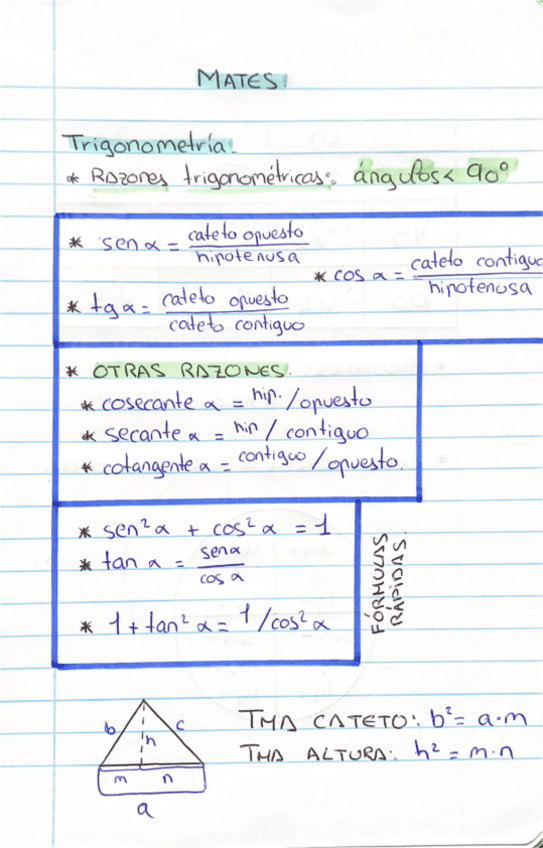 MATES:
Trigonometría:
* Razones trigonométricas: ángulos < 90°
* sen α = cateto opuesto / hipotenusa
* cos α = cateto contiguo / hipotenusa
* tg α = cateto opuesto / cateto contiguo
* OTRAS RAZONES.
* cosecante α = hip. / opuesto
* secante α = hip / contiguo
* cotangente α = contiguo / opuesto.
* sen² α + cos² α = 1
* tan α = sen α / cos α
* 1 + tan² α = 1 / cos² α
FÓRMULAS
RÁPIDAS
b c
h
m n
a
TMA CATETO: b² = a·m
TMA ALTURA: h² = m·n